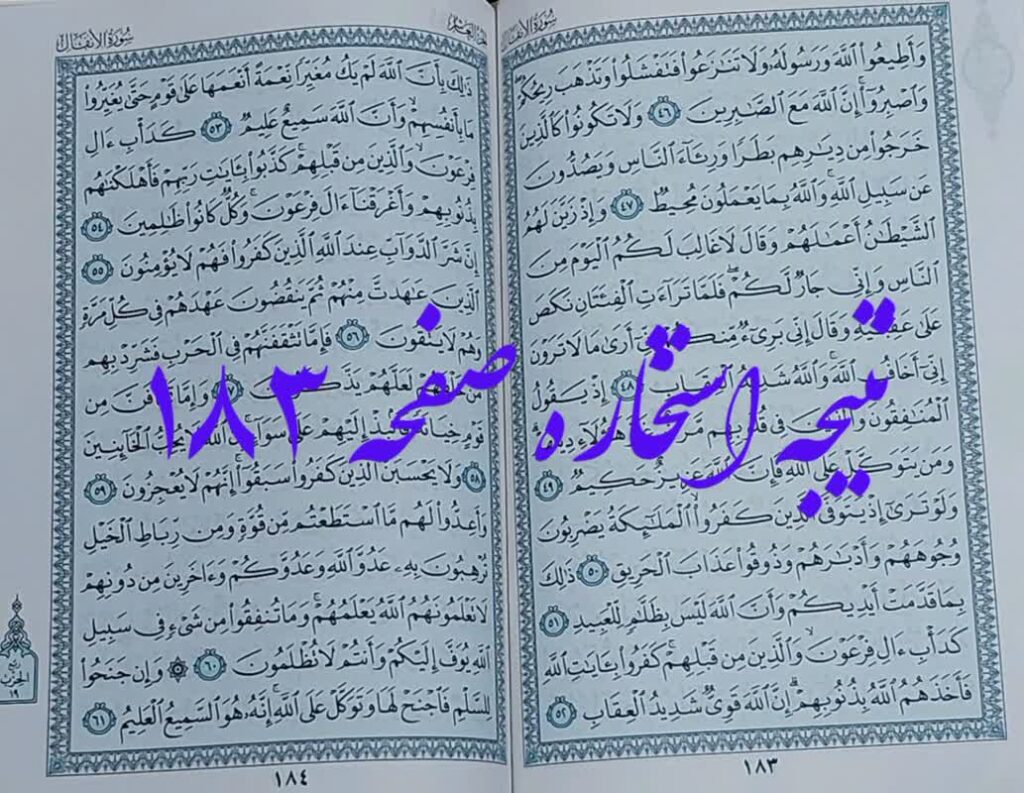 سُورَةُ الأَنفَال
وَأَطِيعُوا۟ ٱللَّهَ وَرَسُولَهُۥ وَلَا تَنَٰزَعُوا۟ فَتَفْشَلُوا۟ وَتَذْهَبَ رِيحُكُمْ
وَٱصْبِرُوٓا۟ إِنَّ ٱللَّهَ مَعَ ٱلصَّٰبِرِينَ ٤٦ وَلَا تَكُونُوا۟ كَٱلَّذِينَ
خَرَجُوا۟ مِن دِيَٰرِهِم بَطَرًا وَرِئَآءَ ٱلنَّاسِ وَيَصُدُّونَ
عَن سَبِيلِ ٱللَّهِ وَٱللَّهُ بِمَا يَعْمَلُونَ مُحِيطٌ ٤٧ وَإِذْ زَيَّنَ لَهُمُ
ٱلشَّيْطَٰنُ أَعْمَٰلَهُمْ وَقَالَ لَا غَالِبَ لَكُمُ ٱلْيَوْمَ مِنَ
ٱلنَّاسِ وَإِنِّى جَارٌ لَّكُمْ فَلَمَّا تَرَآءَتِ ٱلْفِئَتَانِ نَكَصَ
عَلَىٰ عَقِبَيْهِ وَقَالَ إِنِّى بَرِىٓءٌ مِّنكُمْ إِنِّىٓ أَرَىٰ مَا لَا تَرَوْنَ
إِنِّىٓ أَخَافُ ٱللَّهَ وَٱللَّهُ شَدِيدُ ٱلْعِقَابِ ٤٨ إِذْ يَقُولُ
ٱلْمُنَٰفِقُونَ وَٱلَّذِينَ فِى قُلُوبِهِم مَّرَضٌ غَرَّ هَٰٓؤُلَآءِ دِينُهُمْ
وَمَن يَتَوَكَّلْ عَلَى ٱللَّهِ فَإِنَّ ٱللَّهَ عَزِيزٌ حَكِيمٌ ٤٩
وَلَوْ تَرَىٰٓ إِذْ يَتَوَفَّى ٱلَّذِينَ كَفَرُوا۟ ٱلْمَلَٰٓئِكَةُ يَضْرِبُونَ
وُجُوهَهُمْ وَأَدْبَٰرَهُمْ وَذُوقُوا۟ عَذَابَ ٱلْحَرِيقِ ٥٠ ذَٰلِكَ
بِمَا قَدَّمَتْ أَيْدِيكُمْ وَأَنَّ ٱللَّهَ لَيْسَ بِظَلَّٰمٍ لِّلْعَبِيدِ ٥١
كَدَأْبِ ءَالِ فِرْعَوْنَ وَٱلَّذِينَ مِن قَبْلِهِمْ كَفَرُوا۟ بِـَٔايَٰتِ ٱللَّهِ
فَأَخَذَهُمُ ٱللَّهُ بِذُنُوبِهِمْ إِنَّ ٱللَّهَ قَوِىٌّ شَدِيدُ ٱلْعِقَابِ ٥٢
١٨٣
سُورَةُ الأَنفَال
ذَٰلِكَ بِأَنَّ ٱللَّهَ لَمْ يَكُ مُغَيِّرًا نِّعْمَةً أَنْعَمَهَا عَلَىٰ قَوْمٍ حَتَّىٰ يُغَيِّرُوا۟
مَا بِأَنفُسِهِمْ وَأَنَّ ٱللَّهَ سَمِيعٌ عَلِيمٌ ٥٣ كَدَأْبِ ءَالِ
فِرْعَوْنَ وَٱلَّذِينَ مِن قَبْلِهِمْ كَذَّبُوا۟ بِـَٔايَٰتِ رَبِّهِمْ فَأَهْلَكْنَٰهُم
بِذُنُوبِهِمْ وَأَغْرَقْنَآ ءَالَ فِرْعَوْنَ وَكُلٌّ كَانُوا۟ ظَٰلِمِينَ ٥٤
إِنَّ شَرَّ ٱلدَّوَآبِّ عِندَ ٱللَّهِ ٱلَّذِينَ كَفَرُوا۟ فَهُمْ لَا يُؤْمِنُونَ ٥٥
ٱلَّذِينَ عَٰهَدتَّ مِنْهُمْ ثُمَّ يَنقُضُونَ عَهْدَهُمْ فِى كُلِّ مَرَّةٍ
وَهُمْ لَا يَتَّقُونَ ٥٦ فَإِمَّا تَثْقَفَنَّهُمْ فِى ٱلْحَرْبِ فَشَرِّدْ بِهِم
مَّنْ خَلْفَهُمْ لَعَلَّهُمْ يَذَّكَّرُونَ ٥٧ وَإِمَّا تَخَافَنَّ مِن
قَوْمٍ خِيَانَةً فَٱنۢبِذْ إِلَيْهِمْ عَلَىٰ سَوَآءٍ إِنَّ ٱللَّهَ لَا يُحِبُّ ٱلْخَآئِنِينَ
٥٨ وَلَا يَحْسَبَنَّ ٱلَّذِينَ كَفَرُوا۟ سَبَقُوٓا۟ إِنَّهُمْ لَا يُعْجِزُونَ ٥٩
وَأَعِدُّوا۟ لَهُم مَّا ٱسْتَطَعْتُم مِّن قُوَّةٍ وَمِن رِّبَاطِ ٱلْخَيْلِ
تُرْهِبُونَ بِهِۦ عَدُوَّ ٱللَّهِ وَعَدُوَّكُمْ وَءَاخَرِينَ مِن دُونِهِمْ
لَا تَعْلَمُونَهُمُ ٱللَّهُ يَعْلَمُهُمْ وَمَا تُنفِقُوا۟ مِن شَىْءٍ فِى سَبِيلِ
ٱللَّهِ يُوَفَّ إِلَيْكُمْ وَأَنتُمْ لَا تُظْلَمُونَ ٦٠ ۞ وَإِن جَنَحُوا۟
لِلسَّلْمِ فَٱجْنَحْ لَهَا وَتَوَكَّلْ عَلَى ٱللَّهِ إِنَّهُۥ هُوَ ٱلسَّمِيعُ ٱلْعَلِيمُ ٦١
ربع
الحزب
١٩
١٨٤
نتیجه استخاره صفحه ۱۸۳